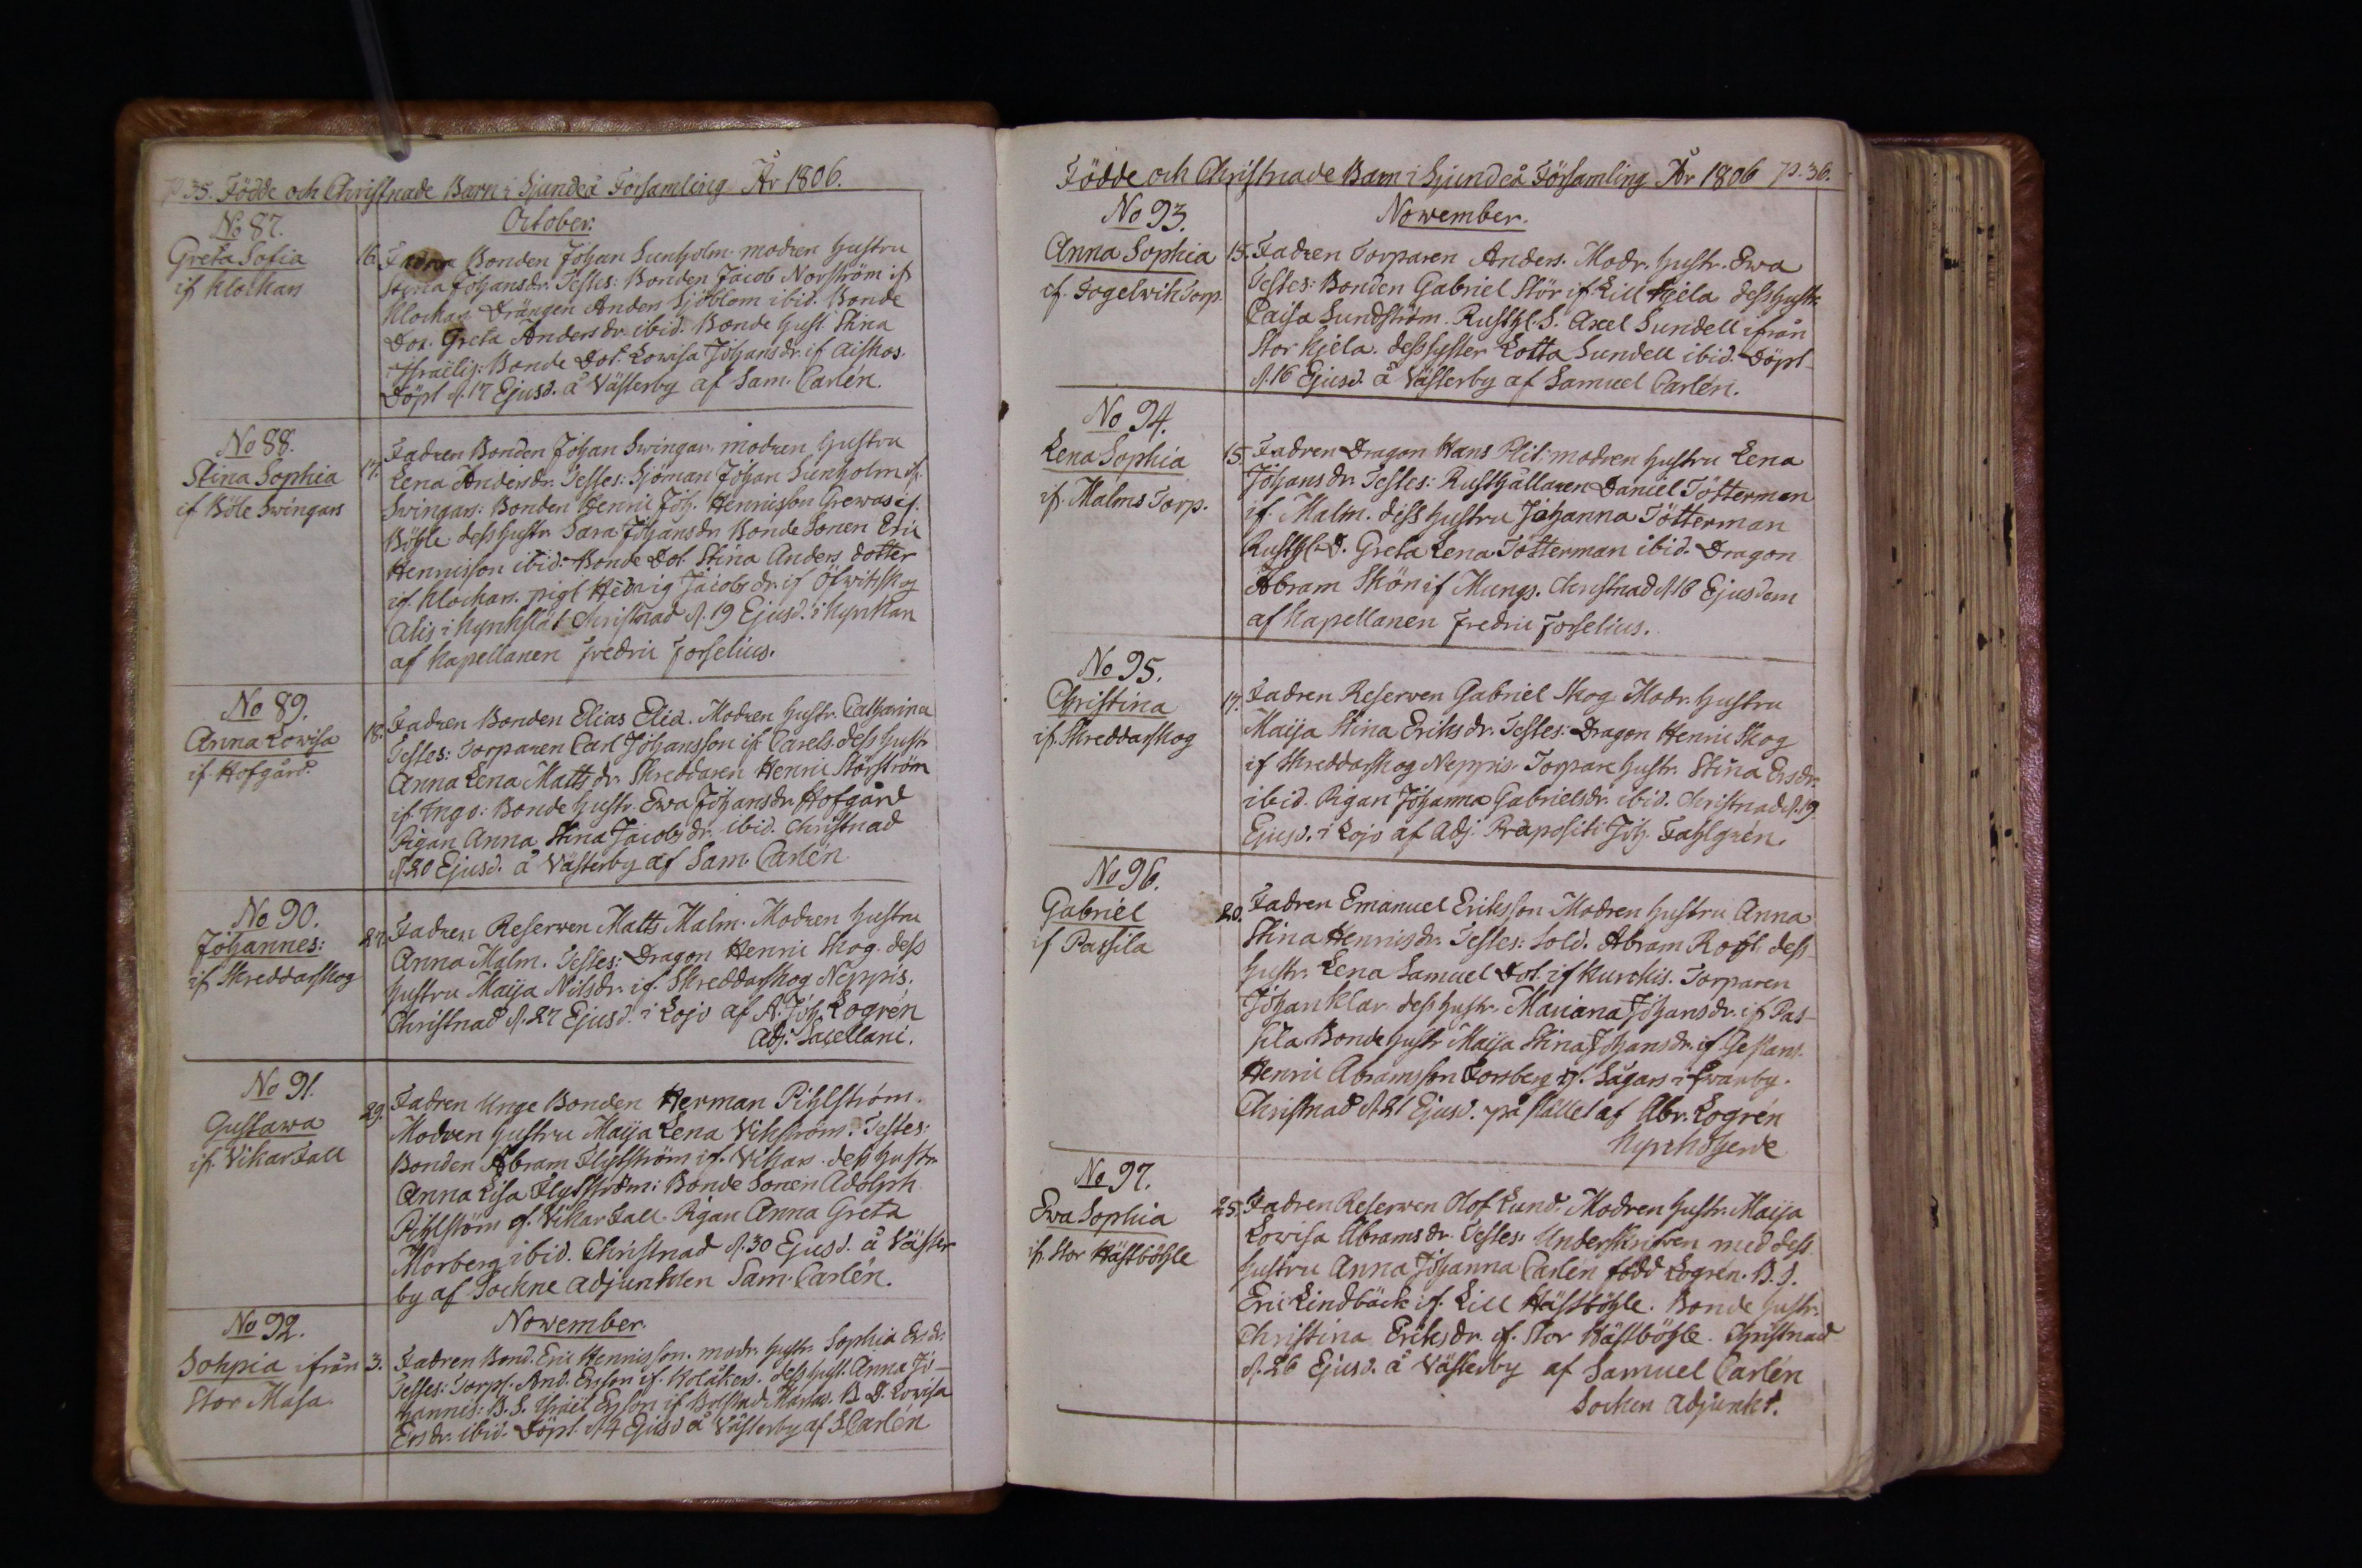 p 35. Födde och Christnade Barn i Sjundeå Församling År 1806.
October.
No 87.
Greta Sofia
if Klockars
16. Fadren Bonden Johan Sunholm. modren Hustru
Stina Johansdr. Testes: Bonden Jacob Norström if
Klockars Drängen Anders Sjöblom ibid. Bonde
Dot. Greta Andersdr ibid. Bonde Hust. Stina
Israels: Bonde Dot. Lowisa Johansdr. if Aiskos.
Döpt d. 17 Ejusd. å Västerby af Sam. Carlén.
No 88.
Stina Sophia
if Böle Swingars
17. Fadren Bonden Johan Swingar. modren Hustru
Lena Andersdr. Testes: Sjöman Johan Sunholm if.
Swingars: Bonden Henric Joh. Henrisson Grewas if.
Böhle dess Hustr. Sara Johansdr Bonde Sonen Eric
Henrisson ibid: Bonde Dot. Stina Anders dotter
if Klockars. pigl Hedvig Jacobs dr. if Öfwitsskog
Alis i Kyrkslät Christnad d. 19 Ejusd. i Kyrkan
af Kapellanen Fredric Forselius.
No 89.
Anna Lowisa
if. Hofgård.
18. Fadren Bonden Elias Elia. Modren Hustr. Catharina
Testes: Torparen Carl Johansson if Carels dess Hustr
Anna Lena Matts dr. Skreddaren Henric Störström
if. Ingo: Bonde Hustr. Ewa Johansdr. Hofgård
Pigan Anna Stina Jacobs dr. ibid. Christnad
d. 20 Ejusd. å Västerby af Sam. Carlén
No 90.
Johannes:
if Skreddarskog
27. Fadren Reserven Matts Malm. Modren Hustru
Anna Malm. Testes: Dragon Henric Skog. dess
Hustru Maija Nilsdr. if. Skreddarskog Neppis.
Christnad d. 27 Ejusd. i Lojo af A. Joh. Logrén
Adj. Sacellani.
No 91.
Gustawa
if. Vikar Fall
29. Fadren Unge Bonden Herman Pihlström.
Modren Hustru Maija Lena Vikström. Testes:
Bonden Abram Flytström if. Vikars. dess Hustr.
Anna Lisa Flytström: Bonde Sonen Adolph
Pihlstöm if. Vikar Fall. Pigan Anna Greta
Mörberg ibid. Christnad d. 30 Ejusd. å Väster
by af Sockne adjunkten Sam. Carlén.
No 92.
Sohpia ifrån
Stor Masa.
Nowember.
3. Fadren Bond. Eric Henrisson. modr. Hustr. Sophia Er. dr.
Testes: Torpl. And. Ersson if. Kolåkers. dess Hust. Anna Jo-
hannis: B. S. Israel Ersson if B. D. Lowisa
Ersdr. ibid. Döpt. d. 4 Ejusd å Västerby af S Carlén
Födde och Christnade Barn i Sjundeå Församling År 1806 p. 36.
Nowember.
No 93.
Anna Sophia
if. Fogelwik Torp.
15. Fadren Torparen Anders. Modr. Hustr. Ewa
Testes: Bonden Gabriel Stör if. Lill Kjela dess Hustr
Caisa Sundström. Rusthl. S. Axel Sundell ifrån
Stor Kjela. dess syster Lotta Sundell ibid. Döpt-
d. 16 Ejusd. å Västerby af Samuel Carlén.
No 94.
Lena Sophia
if. Malms Torp.
15. Fadren Dragon Hans Flit: modren Hustru Lena
Johans dr. Testes: Rusthållaren Daniel Tötterman
if. Malm. dess Hustru Johanna Tötterman
Rusthl. D. Greta Lena Tötterman ibid. Dragon
Abram Skön if Mungs. Christnad d 16 Ejusdem
af Kapellanen Fredric Forselius.
No 95.
Christina
if. Skreddarskog
17. Fadren Reserven Gabriel Skog Modr. Hustru
Maija Stina Eriks dr. Testes: Dragon Henric Skog
if Skreddarskog Neppis. Torpare Hustr. Stina Ersdr.
ibid. Pigan Johanna Gabrielsdr. ibid. Christnad d. 19
Ejusd. i Lojo af Adj. Præpositi Joh. Fahlgrén.
No 96.
Gabriel
if Passila
20. Fadren Emanuel Eriksson Modren Hustru Anna
Stina Henrisdr. Testes: Sold. Abram dess
Hustr. Lena Samuel Dot. if Kurckis. Torparen
Johan Klar dess Hustr. Mariana Johansdr. if Pas-
sila. Bonde Hustr Maija Stina Johansdr. if
Henric Abramsson Forsberg if. Sågars i Swanby.
Christnad d. 21 Ejusd. på stället af Abr. Logrén
Kyrckoherde
No 97.
Ewa Sophia
if. Stor Hästböhle
25. Fadren Reserven Olof Lund. Modren Hustr. Maija
Lowisa Abramsdr. Testes: Underskrifven med dess
Hustru Anna Johanna Carlén född Logrén. B. S.
Eric Lindbäck if. Lill Hästböhle. Bonde Hustr.
Christina Eriksdr. if. Stor Hästböhle. Christnad
d. 26 Ejusd. å Västerby af Samuel Carlén
Socken adjunkt.